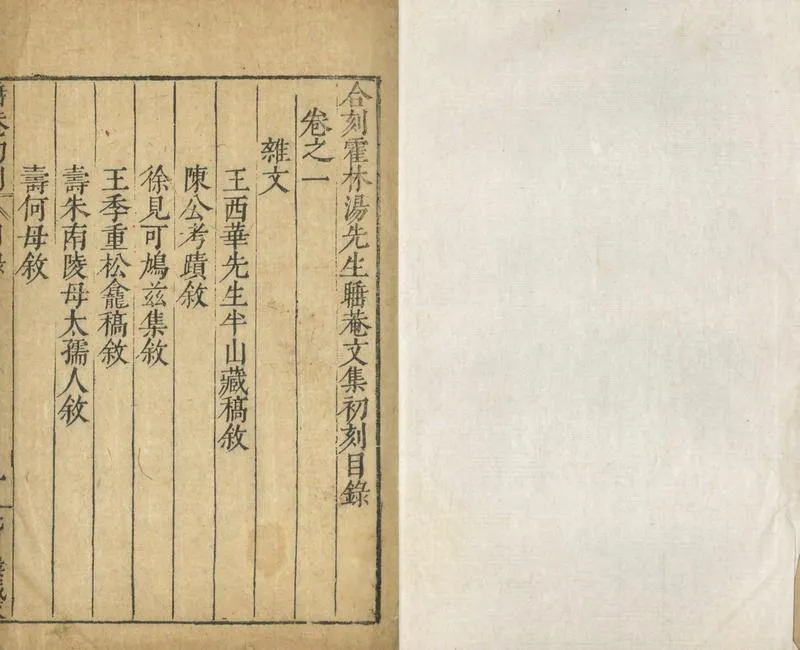 合刻霍林湯先生睡菴文集初刻目錄
卷之一
雜文
王西華先生半山藏稿敘
陳公考蹟敘
徐見可鳩茲集敘
王季重松龕稿敘
壽朱南陵母太孺人敘
壽何母敘